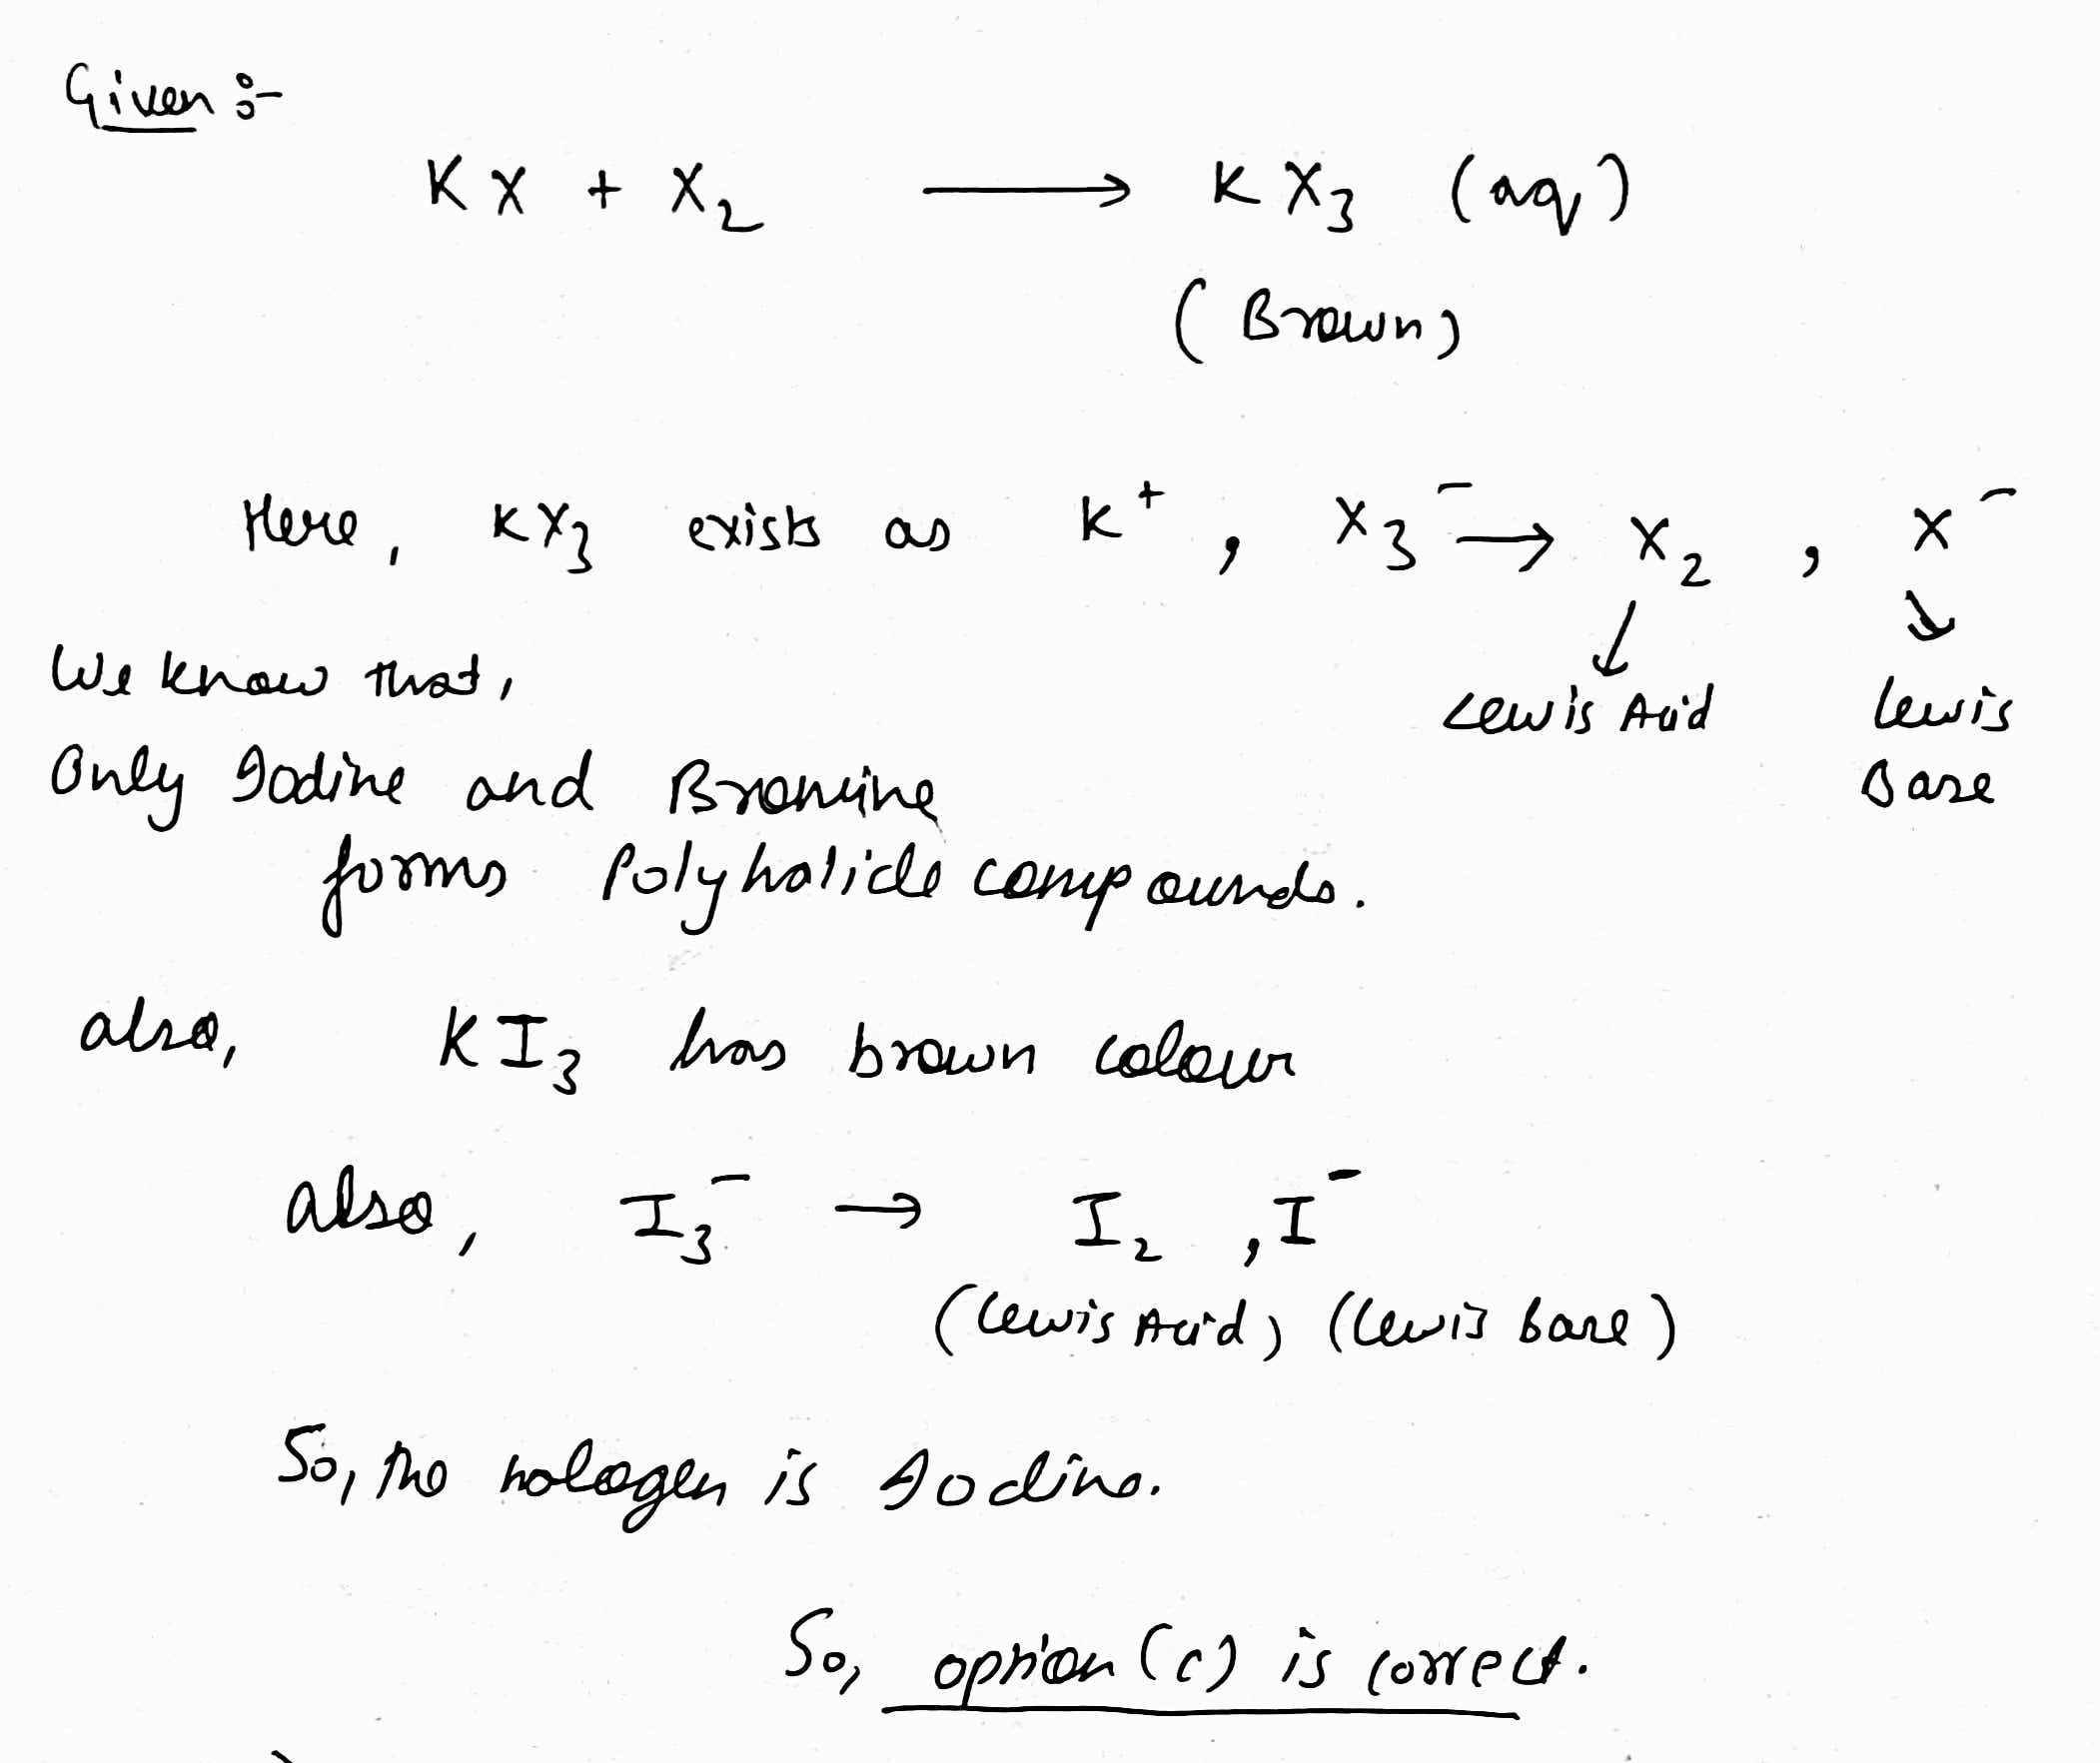 Given :-
KX + X2 ⟶ KX3 (aq)
(Brown)
Here, KX3 exists as K+ , X3- ⟶ X2 , X-
↓ ↘
We know that,
Lewis Acid Lewis
Only Iodine and Bromine Base
forms Polyhalide compounds.
also, KI3 has brown colour
also, I3- → I2 , I-
(Lewis Acid) (Lewis base)
So, the halogen is Iodine.
So, option (c) is correct.